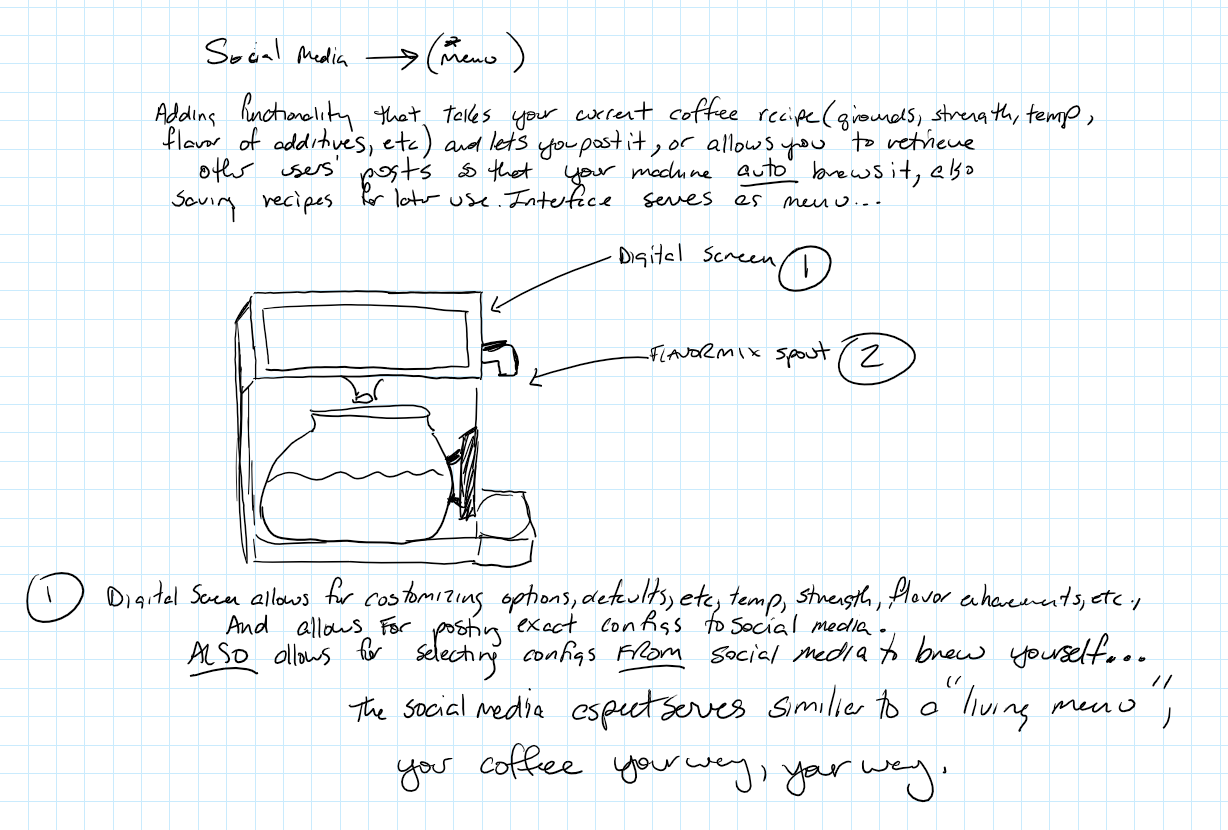 Social Media → (*Menu)
Adding functionality that takes your current coffee recipe (grounds, strength, temp,
flavor of additives, etc) and lets you post it, or allows you to retrieve
other users' posts so that your machine auto brews it, also
saving recipes for later use. Interface serves as menu...
Digital Screen 1
FLAVORMIX spout 2
1 Digital Screen allows for customizing options, defaults, etc, temp, strength, flavor enhancements, etc.,
And allows For posting exact configs to social media.
ALSO allows for selecting configs FROM social media to brew yourself...
The social media aspect serves similar to a "living menu",
your coffee your way, your way.